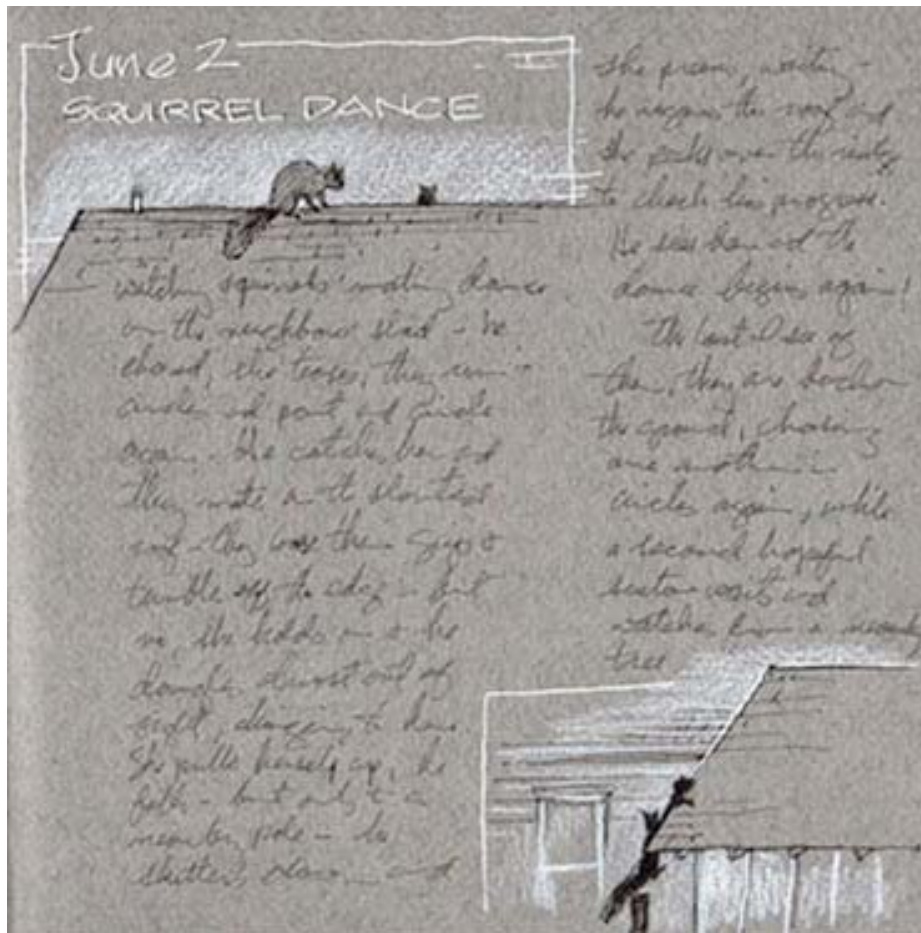 June 2
SQUIRREL DANCE
watching squirrels' mating dance
on the neighbours shed - he
chased, she teases, they run -
circle and pant and circle
again. He catches her and
they mate on the
roof - they lose their grip &
tumble off the edge - but
no, she holds on & he
dangles almost out of
sight, clinging to her.
She pulls herself up, he
falls - but only to a
nearby pole - he
down and
she preens, waiting -
he regains the roof and
she peeks over the ridge
to check his progress.
He sees her and the
dance begins again!
The last I see of
them, they are back on
the ground, chasing
one another in
circles again, while
a second hopeful
waits and
watches from a nearby
tree